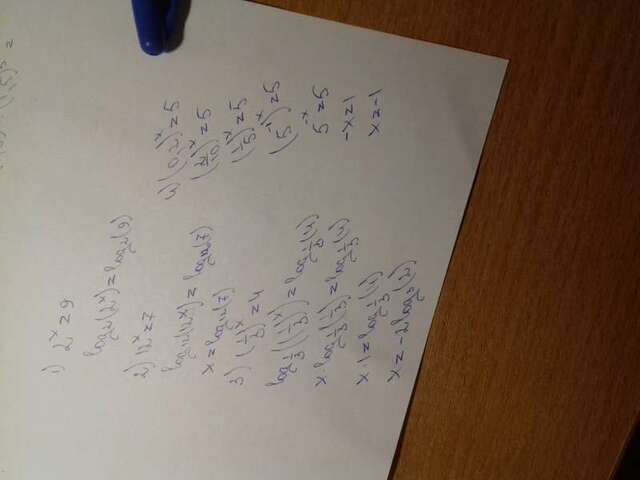 1) 2^x = 9
log₂(2^x) = log₂(9)
2) 12^x = 7
log₁₂(12^x) = log₁₂(7)
x = log₁₂(7)
3) (1/3)^x = 4
log_1/3((1/3)^x) = log_1/3(4)
x · log_1/3(1/3) = log_1/3(4)
x · 1 = log_1/3(4)
x = -2log₃(2)
4) (0,2)^x = 5
(2/10)^x = 5
(1/5)^x = 5
(5^-x)^x = 5
5^-x = 5
-x = 1
x = -1